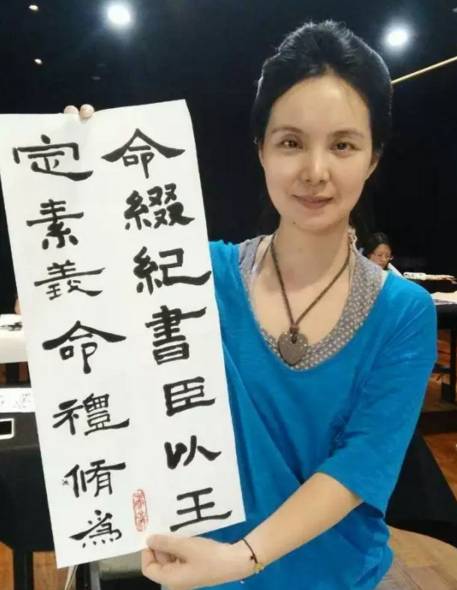 命綴紀書臣以王
定素義命禮脩為